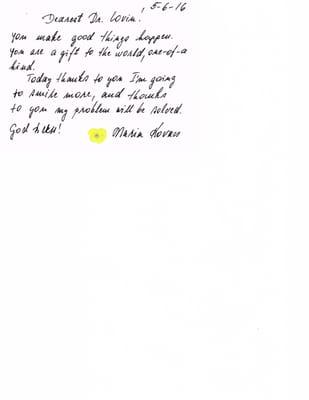 5-6-16
Dearest Dr. Lovin!
You make good things happen.
You are a gift to the world, one-of-a
kind.
Today thanks to you I'm going
to smile more, and thanks
to you my problem will be solved.
God bless! Maria Kovacs